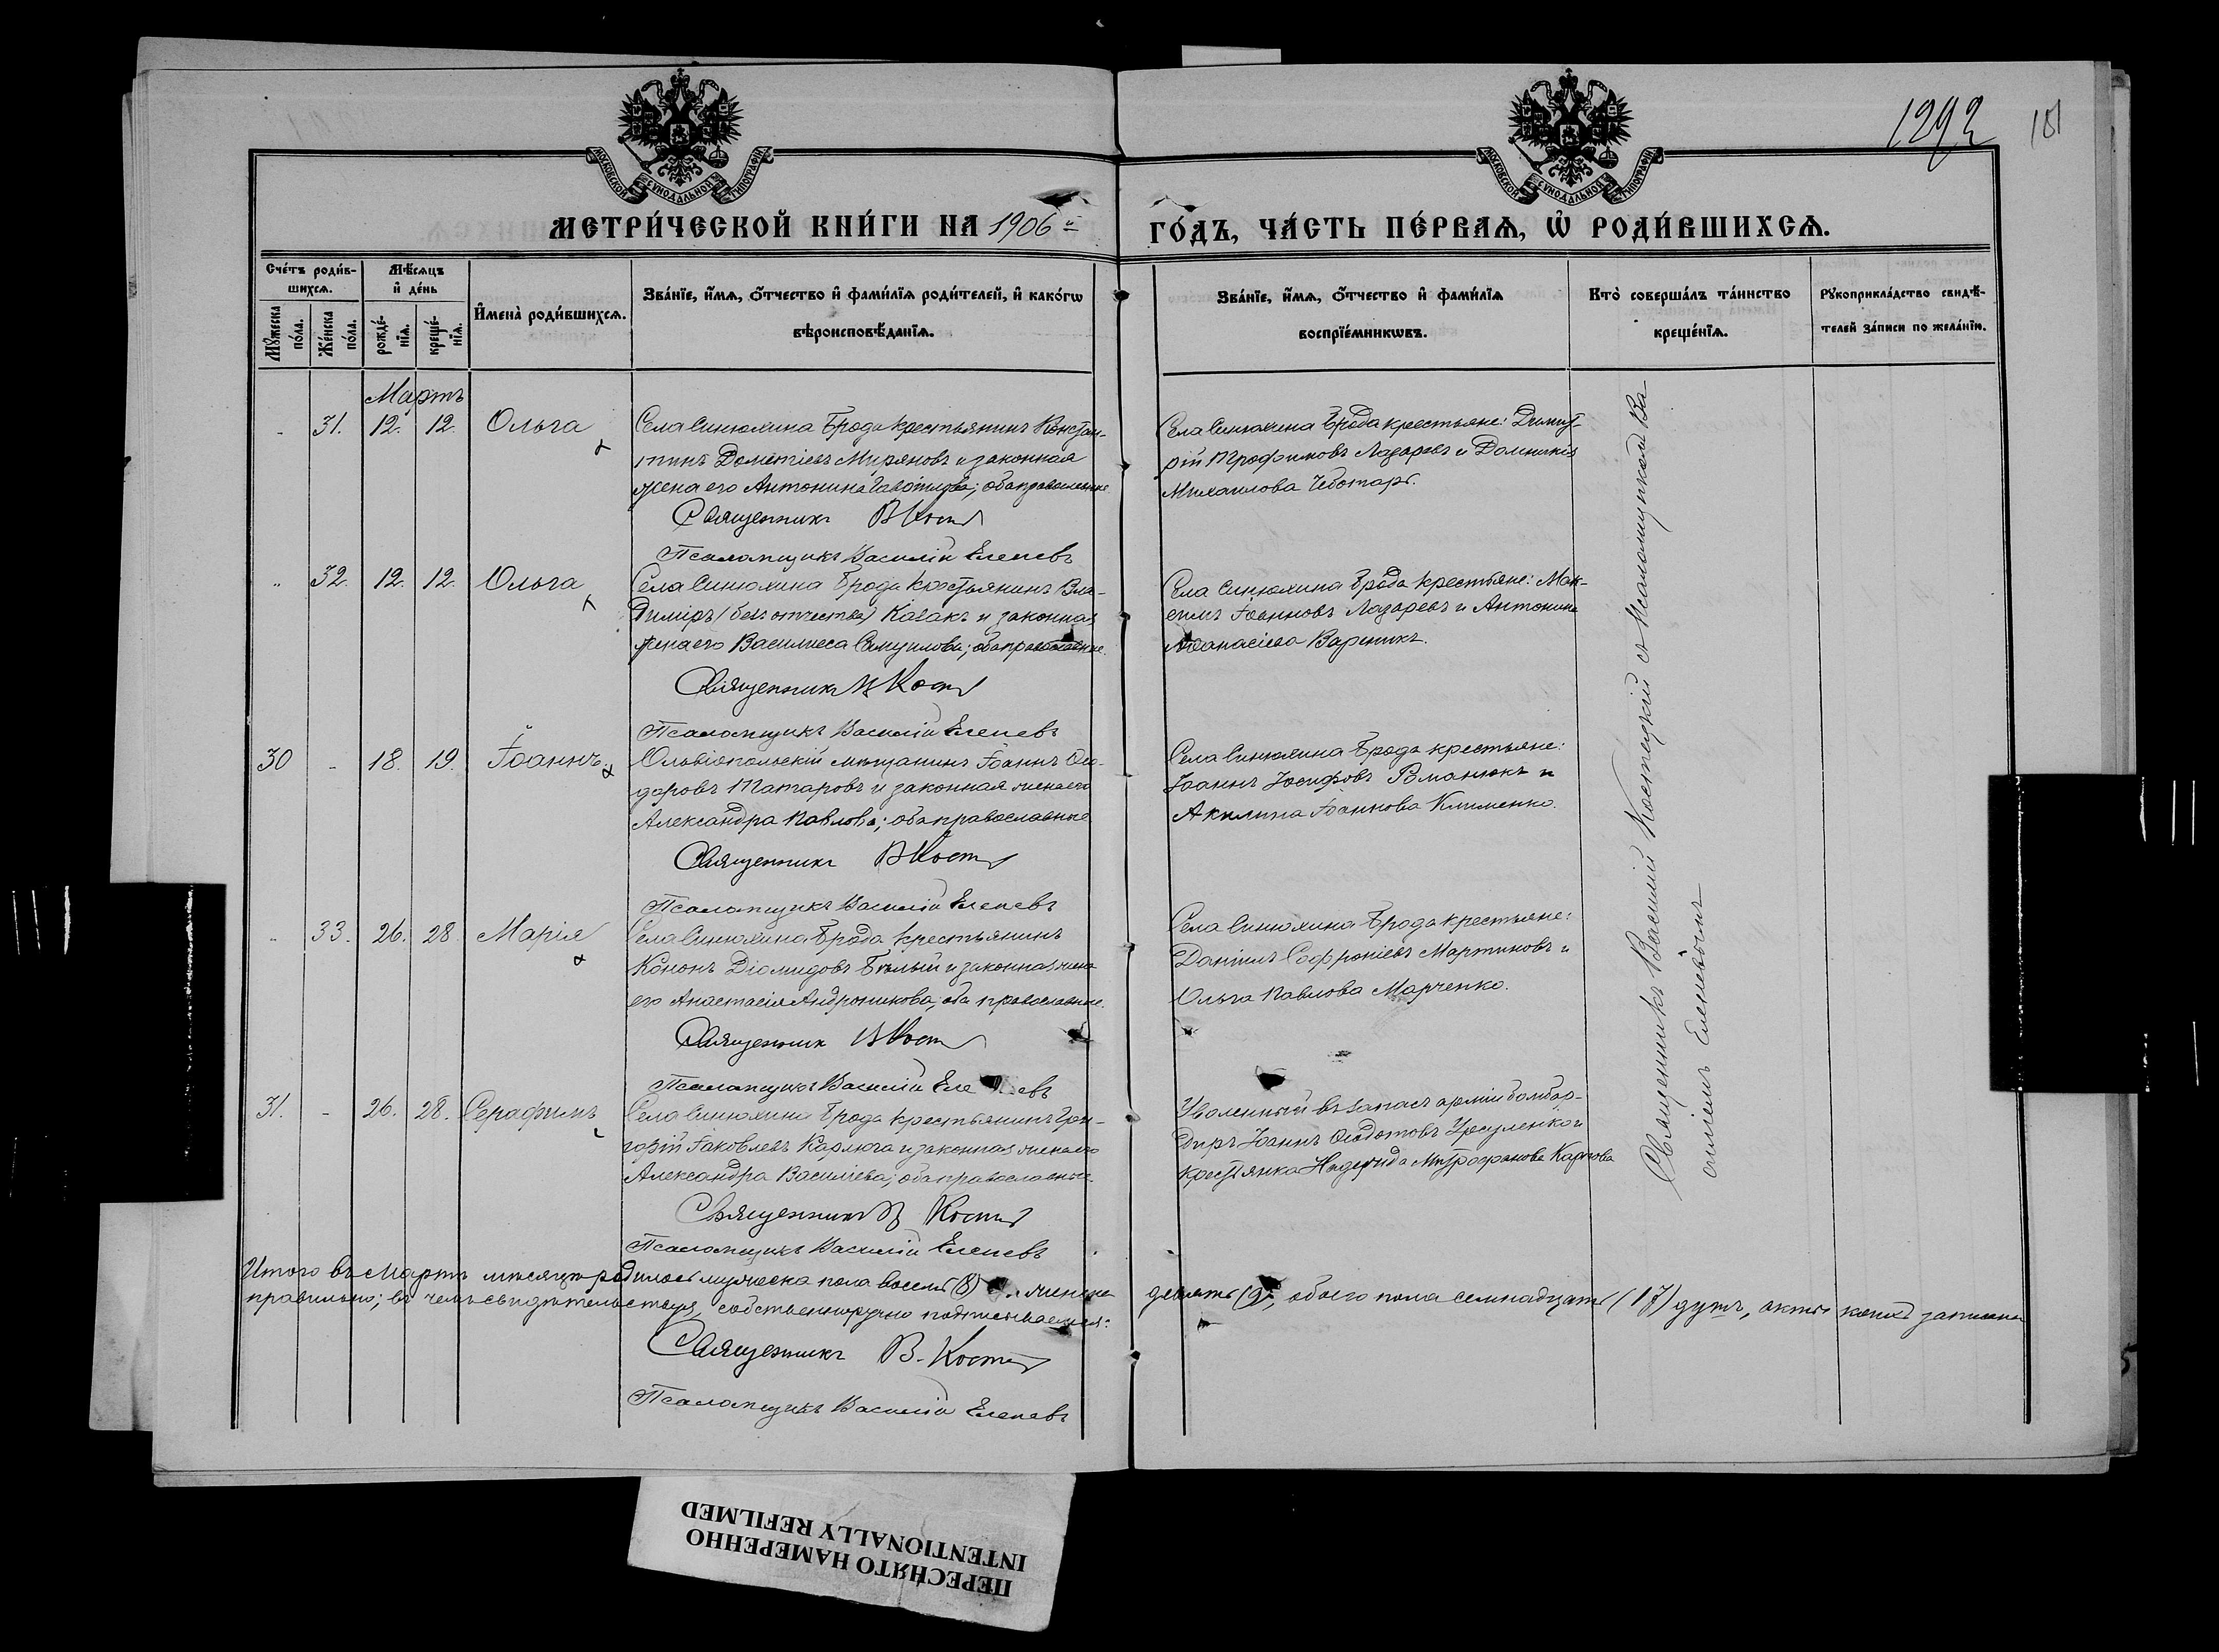 1292
181
МОСКОВСКОЙ СѴНОДАЛЬНОЙ ТИПОГРАФІИ
МОСКОВСКОЙ СѴНОДАЛЬНОЙ ТИПОГРАФІИ
МЕТРИ́ЧЕСКОЙ КНИ́ГИ НА 1906й ГО́ДЪ, ЧА́СТЬ ПЕ́РВАѦ, Ѡ҆ РОДИ́ВШИХСѦ.
Сче́тъ роди́в-
шихсѧ.
Мꙋ́жеска по́ла.
Же́нска по́ла.
Мѣ́сѧцъ
и҆ де́нь
рожде́-
нїѧ.
креще́-
нїѧ.
И҆мена̀ роди́вшихсѧ.
Зва́нїе, и҆́мѧ, ѻ҆́тчество и҆ фами́лїѧ роди́телей, и҆ како́гѡ
вѣроисповѣ́данїѧ.
Зва́нїе, и҆́мѧ, ѻ҆́тчество и҆ фами́лїѧ
воспрїе́мникѡвъ.
Кто̀ соверша́лъ та́инство
креще́нїѧ.
Рꙋкоприкла́дство свидѣ́-
телей за́писи по жела́нїю.
Мартъ
- 31. 12. 12. Ольга
Села Синюхина Брода крестьянинъ Констан-
тинъ Дометіевъ Миряновъ и законная
жена его Антонина; оба православные
Священникъ В Кост
Псаломщикъ Василій Елепевъ
Села Синюхина Брода крестьяне: Димит-
рій Трофимовъ Лазаревъ и Домникія
Михаилова Чеботарь.
" 32. 12. 12. Ольга
Села Синюхина Брода крестьянинъ Вла-
диміръ (безъ отчества) Казакъ и законная
жена его Василисса Самуилова; оба православные.
Священникъ В Кост
Псаломщикъ Василій Елепевъ
Села Синюхина Брода крестьяне: Мак-
симъ Іоанновъ Лазаревъ и Антонина
Афанасіева Вареникъ.
30 - 18. 19. Іоаннъ.
Ольвіопольскій мѣщанинъ Іоаннъ Ѳео-
доровъ Татаровъ и законная жена его
Александра Павлова; оба православные
Священникъ В Кост
Псаломщикъ Василій Елепевъ
Села Синюхина Брода крестьяне:
Іоаннъ Іосифовъ Романюкъ и
Акилина Іоаннова Клименко.
" 33. 26. 28. Марія
Села Синюхина Брода крестьянинъ
Кононъ Діомидовъ Бѣлый и законная жена
его Анастасія Андроникова; оба православные.
Священникъ В Кост
Псаломщикъ Василій Еле евъ
Села Синюхина Брода крестьяне:
Даніилъ Софроніевъ Мартиновъ и
Ольга Павлова Марченко.
31. - 26. 28. Серафимъ
Села Синюхина Брода крестьянинъ Гри-
горій Іаковлевъ Карлюга и законная жена его
Александра Василіева; оба православные.
Священникъ В Кост
Псаломщикъ Василій Елепевъ
Уволенный въ запасъ арміи бомбар-
диръ Іоаннъ Ѳеодотовъ Урсуленко и
крестьянка Митрофанова Карпова
Священникъ Василій Костецкій съ псаломщикомъ Ва-
силіемъ Елепевымъ
Итого въ Мартѣ мѣсяцѣ родилось мужеска пола восемь (8) женска девять (9), обоего пола семнадцать (17) душъ, акты коихъ записаны
правильно; въ чемъ свидѣтельствуя, собственноручно подписываемся:
Священникъ В. Кост
Псаломщикъ Василій Елепевъ
ПЕРЕСНЯТО НАМЕРЕННО
INTENTIONALLY REFILMED